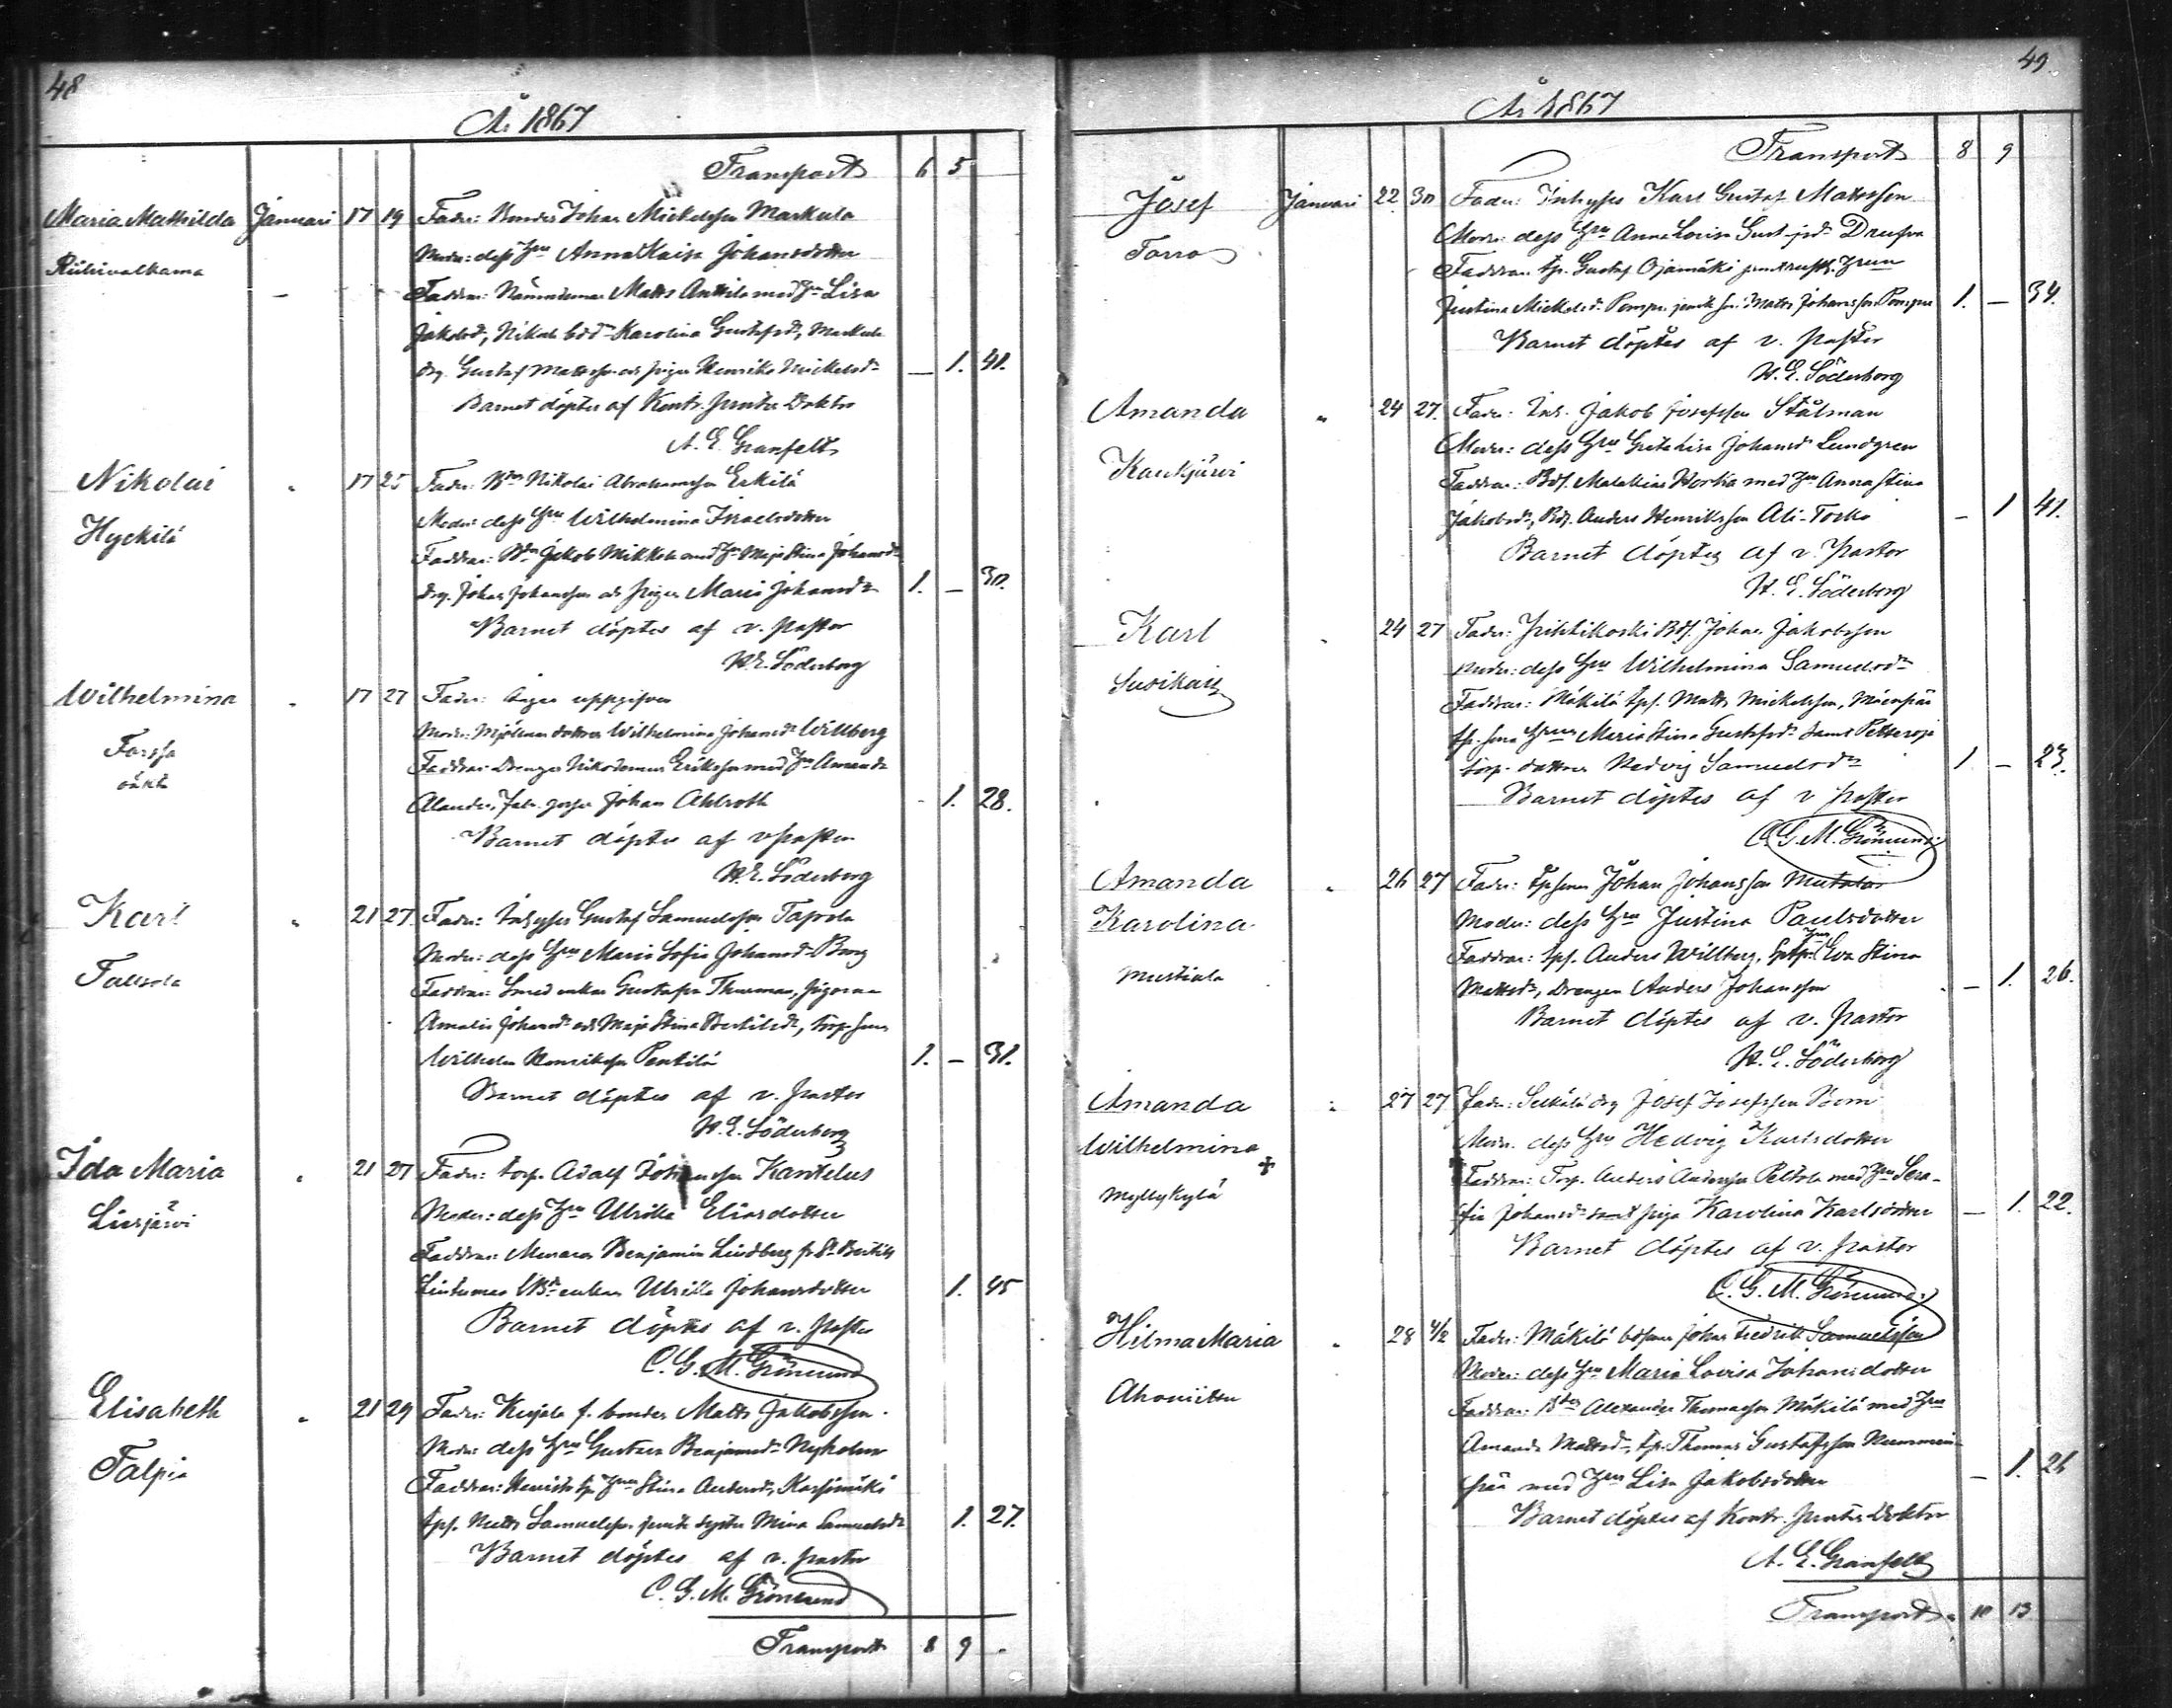 48
År 1867
Transport 6 5
Maria Mathilda Januari 17 19 Fader: Bonden Johan Mickelsson Markula
Moder: dess Hru Anna Kaisa Johansdotter
Riihivalkama
Faddrar: Nämndeman Matts Anttila med Hu Lisa
Jakobsd, Nikula bdd Karolina Gustafsd, Markula
drg. Gustaf Mattsson och pigan Henrika Mickelsd — 1. 41.
Barnet döptes af Kontr. Prosten Doktor
A. E. Granfelt
Nikolai " 17 25 Fader: Bdn Nikolai Abrahamsson Erkilä
Moder: dess Hru Wilhelmina Israelsdotter
Hyckilä
Faddrar: Bdn Jakob Mikkola med Hu Maja Stina Johansd
drg. Johan Johansson och pigan Maria Johansd 1. — 30.
Barnet döptes af v. Pastor
W. E. Söderborg
Wilhelmina " 17 27 Fader: Ingen uppgifven
Moder: Mjölnare dottren Wilhelmina Johansd Willberg
Forssa
oäkta
Faddrar: Drengen Nikodemus Eriksson med Hu Amanda
Alander, Fabr. gossen Johan Ahlroth - 1. 28.
Barnet döptes af v Pastor
W. E. Söderborg
Karl " 21 27. Fader: Inhyses Gustaf Samuelsson Tapola
Moder: dess Hru Maria Sofia Johansd Borg
Talsola
Faddrar: Smed enkan Gustafva Thurman, pigorna
Amalia Johansd och Maja Stina Bertilsd, torp. sonen
Wilhelm Henriksson Penttilä 1. — 31.
Barnet döptes af v. Pastor
W. E. Söderborg
Ida Maria " 21 27 Fader: torp. Adolf Johansson Kantelus
Moder: dess Hru Ulrika Eliasdotter
Liesjärvi
Faddrar: Muraren Benjamin Lindberg fr. St. Bertils
Lintumaa Bde enkan Ulrika Johansdotter 1. 45
Barnet döptes af v. Pastor
C. G. M. Grönlund
Elisabeth " 21 29 Fader: Kujala f. bonden Matts Jakobsson
Moder: dess Hru Gustava Benjamsd Nyholm
Talpia
Faddrar: Henrik tp Hru Stina Andersd, Karjumäki
tps. Matts Samuelsson jemte syster Mina Samuelsd 1. 27.
Barnet döptes af v. Pastor
C. G. M. Grönlund
Transport 8 9
49
År 1867
Transport 8 9
Josef Januari 22 30 Fader: Inhyses Karl Gustaf Mattsson
Moder: dess Hru Anna Lovisa Gust-jsd Drufva
Torro
Faddrar: tp. Gustaf Ojamäki Hrun
Justina Mickelsd Pompu jemte son Matts Johansson Pompu 1. — 34.
Barnet döptes af v. Pastor
W. E. Söderborg
Amanda " 24 27. Fader: Inh. Jakob Josefsson Stålman
Moder: dess Hru Greta Lisa Johansd Lundgren
Kaukjärvi
Faddrar: Bds. Malakias Horha med Hu Anna Stina
Jakobsd, Bds. Anders Henriksson Ali-Torko — 1 41.
Barnet döptes af v. Pastor
W. E. Söderborg
Karl " 24 27 Fader: Bds. Johan Jakobsson
Moder: dess Hru Wilhelmina Samuelsd
Susikas
Faddrar: Mäkilä tps. Matts Mickelsson,
tp. sons Hrun Maria Stina Gustafsd samt
torp. dottren Hedvig Samuelsd 1. — 23.
Barnet döptes af v Pastor
C. G. M. Grönlund
Amanda " 26 27 Fader: tp sonen Johan Johansson
Karolina
Moder: dess Hru Justina Paulsdotter
Mustiala
Faddrar: tps. Anders Willberg, Hru Eva Stina
Mattsd, Drengen Anders Johansson — 1. 26.
Barnet döptes af v. Pastor
W. E. Söderborg
Amanda " 27 27 Fader: drg Josef Josefsson
Wilhelmina +
Moder: dess Hru Hedvig Karlsdotter
Myllykylä
Faddrar: Torp. Anders Andersson Peltola med Hu Sera-
fia Johansd samt piga Karolina Karlsdotter — 1. 22.
Barnet döptes af v. Pastor
C. G. M. Grönlund
Hilma Maria " 28 4/2 Fader: Mäkilä bdsonen Johan Fredrik Samuelsson
Moder: dess Hru Maria Lovisa Johansdotter
Ahoniitun
Faddrar: Bden Alexander Thomasson Mäkilä med Hru
Amanda Mattsd, tp. Thomas Gustafsson Nummin-
pää med Hru Lisa Jakobsdotter — 1. 26
Barnet döptes af Kontr. Prosten Doktor
A. E. Granfelt
Transport 10 13